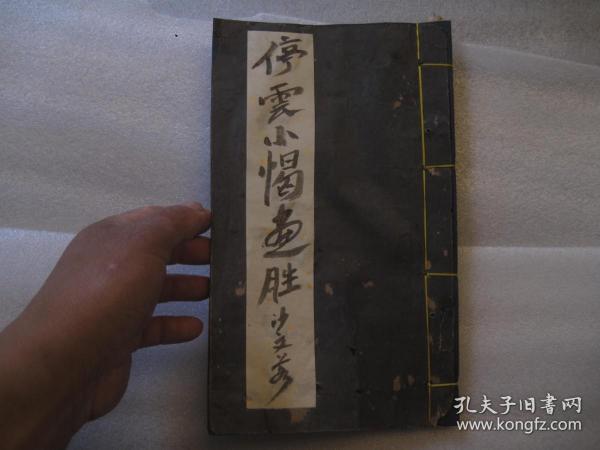 停雲小憩畫胜
沙文若
孔夫子旧书网
www.kongfz.com